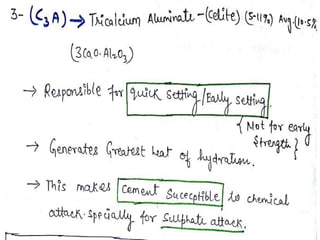 3- (C₃A) → Tricalcium Aluminate - (Celite) (5-11%) Avg. (10.5%
(3CaO.Al₂O₃)
→ Responsible for quick Setting/Early Setting.
{ Not for early
Strength }
→ Generates Greatest heat of hydration.
→ This makes Cement Suceceptible to chemical
attack. Specially for Sulphate attack.